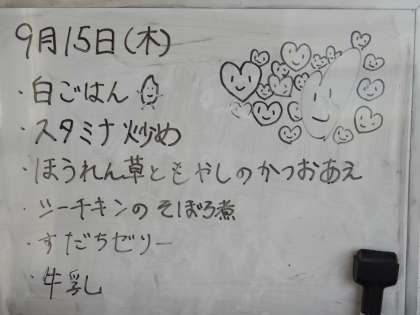 9月15日(木)
・白ごはん
・スタミナ炒め
・ほうれん草ともやしのかつおあえ
・シーチキンのそぼろ煮
・すだちゼリー
・牛乳